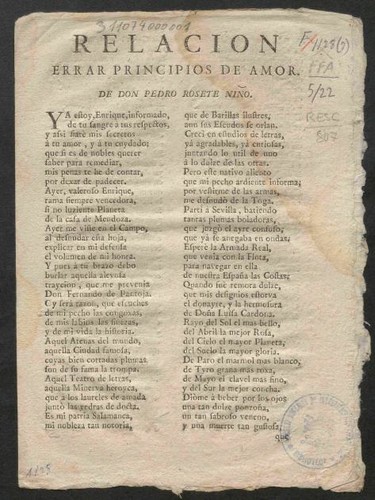 31107 9000001
RELACION
ERRAR PRINCIPIOS DE AMOR.
DE DON PEDRO ROSETE NIÑO.
YA estoy, Enrique, informado,
de tu sangre a tus respectos,
y assi fiaré mis secretos
à tu amor, y à tu cuydado;
que si es de nobles querer
saber para remediar,
mis penas te he de contar,
por dexar de padecer.
Ayer, valeroso Enrique,
rama siempre vencedora,
si no luziente Planeta
de la casa de Mendoza.
Ayer me viste en el Campo,
al desnudar esta hoja,
explicar en mi defensa
el volumen de mi honra.
Y pues à tu brazo debo
burlar aquella alevosa
traycion, que me prevenia
Don Fernando de Pantoja.
y serà razon, que escuches
de mi pecho las congojas,
de mis labios las finezas,
y de mi vida la historia.
Aquel Atenas del mundo,
aquella Ciudad famosa,
cuyas bien cortadas plumas
son de su fama la trompa.
Aquel Teatro de letras,
aquella Minerva heroyca,
que à los laureles de amada
juntò las yedras de docta.
Es mi patria Salamanca,
mi nobleza tan notoria,
que de Barillas ilustres,
aun sus Escudos se orlan.
Creci en estudios de letras,
yà agradables, yà curiosas,
juntando lo util de uno
à lo dulce de las otras.
Pero este nativo aliento
que mi pecho ardiente informa;
por vestirme de las armas,
me desnudò de la Toga.
Parti à Sevilla, batiendo
tantas plumas boladoras,
que juzgò el ayre confuso,
que yà se anegaba en ondas.
Esperè la Armada Real,
que venia con la Flota,
para navegar en ella
de nuestra España las Costas;
Quando fue remora dulce,
que mis designios estorva
el donayre, y la hermosura
de Doña Luisa Cardona.
Rayo del Sol el mas bello,
del Abril la mejor Rosa,
del Cielo el mayor Planeta,
del Suelo la mayor gloria.
De Paro el marmol mas blanco,
de Tyro grana mas roxa,
de Mayo el clavel mas fino,
y del Sur la mejor concha.
Diòme à beber por los ojos
una tan dulce ponzoña,
un tan sabroso veneno,
y una muerte tan gustosa,
que
FFA
5/22